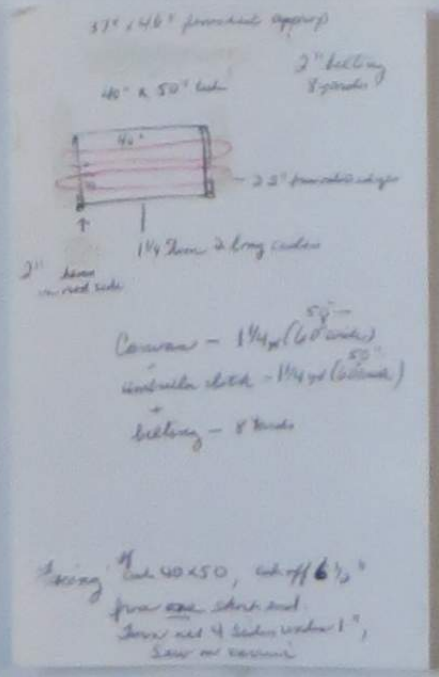 37" x 46" finished approx
2" belting
8 yards
40" x 50" cut
40"
2 3" finished edges
2" hem
in rod side
1 1/4 Hem 2 long sides
50"
Canvas - 1 1/4 yd (60" wide)
50"
umbrella cloth - 1 1/4 yd (60" wide)
+
belting - 8 yards
"Facing" Cut 40 x 50, cut off 6 1/2"
from one short end.
Turn all 4 sides under 1",
Sew on canvas